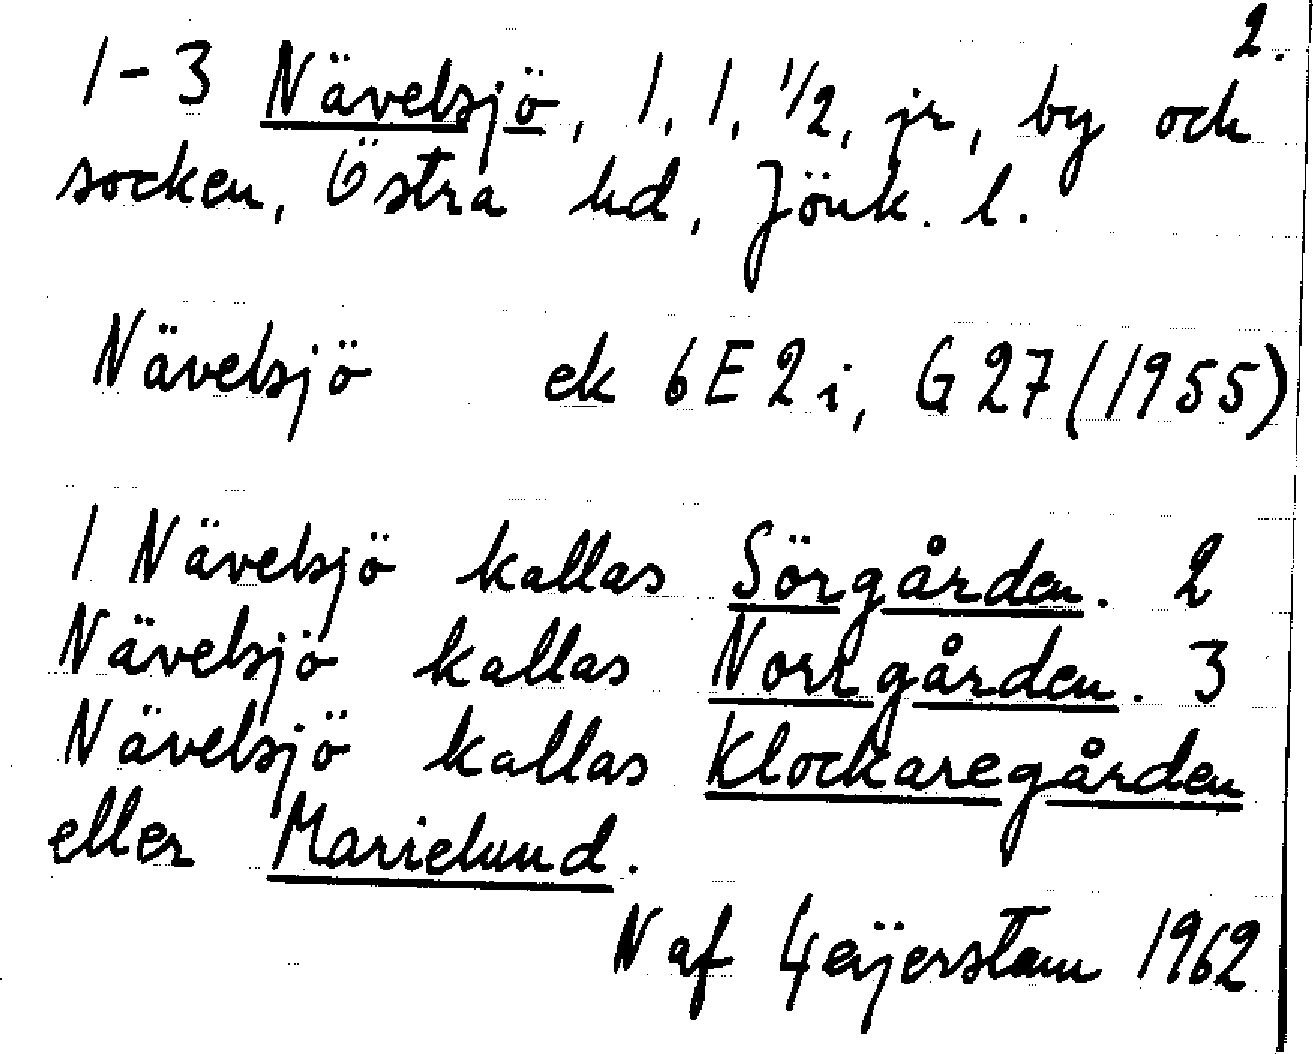 2.
1-3 Nävelsjö, 1, 1, 1/2, jr, by och
socken, Östra hd, Jönk. l.
Nävelsjö ek 6E2i, G27(1955)
1 Nävelsjö kallas Sörgården. 2
Nävelsjö kallas Norrgården. 3
Nävelsjö kallas Klockaregården
eller Marielund.
N af Geijerstam 1962